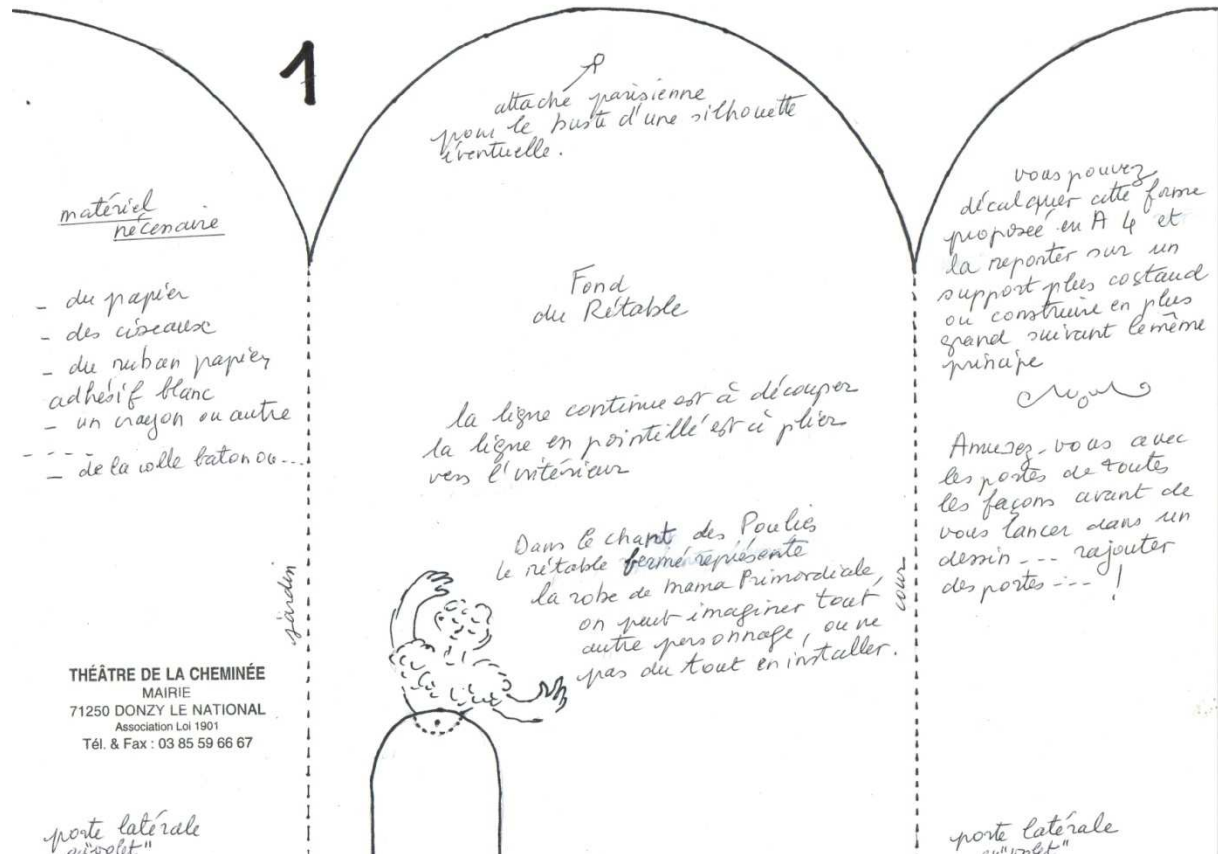 1
attache parisienne
pour le buste d'une silhouette
éventuelle.
matériel
nécessaire
- du papier
- des ciseaux
- du ruban papier
adhésif blanc
- un crayon ou autre
- - - -
- de la colle baton ou...
jardin
THÉÂTRE DE LA CHEMINÉE
MAIRIE
71250 DONZY LE NATIONAL
Association Loi 1901
Tél. & Fax : 03 85 59 66 67
porte latérale
"volet"
Fond
du Rétable
la ligne continue est à découper
la ligne en pointillé est à plier
vers l'intérieur
Dans le chant des Poulies
le rétable fermé représente
la robe de mama Primordiale,
on peut imaginer tout
autre personnage, ou ne
pas du tout en installer.
cour
vous pouvez
décalquer cette forme
proposée en A4 et
la reporter sur un
support plus costaud
ou construire en plus
grand suivant le même
principe
Amusez-vous avec
les portes de toutes
les façons avant de
vous lancer dans un
dessin --- rajouter
des portes --- !
porte latérale
"volet"